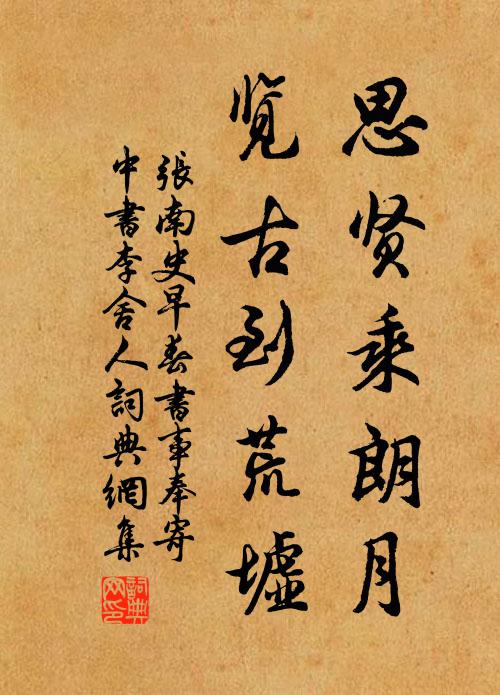 思贤乘朗月
览古到荒墟
張南史早春書事奉寄
中書李舍人詞典網集
詞典
网印